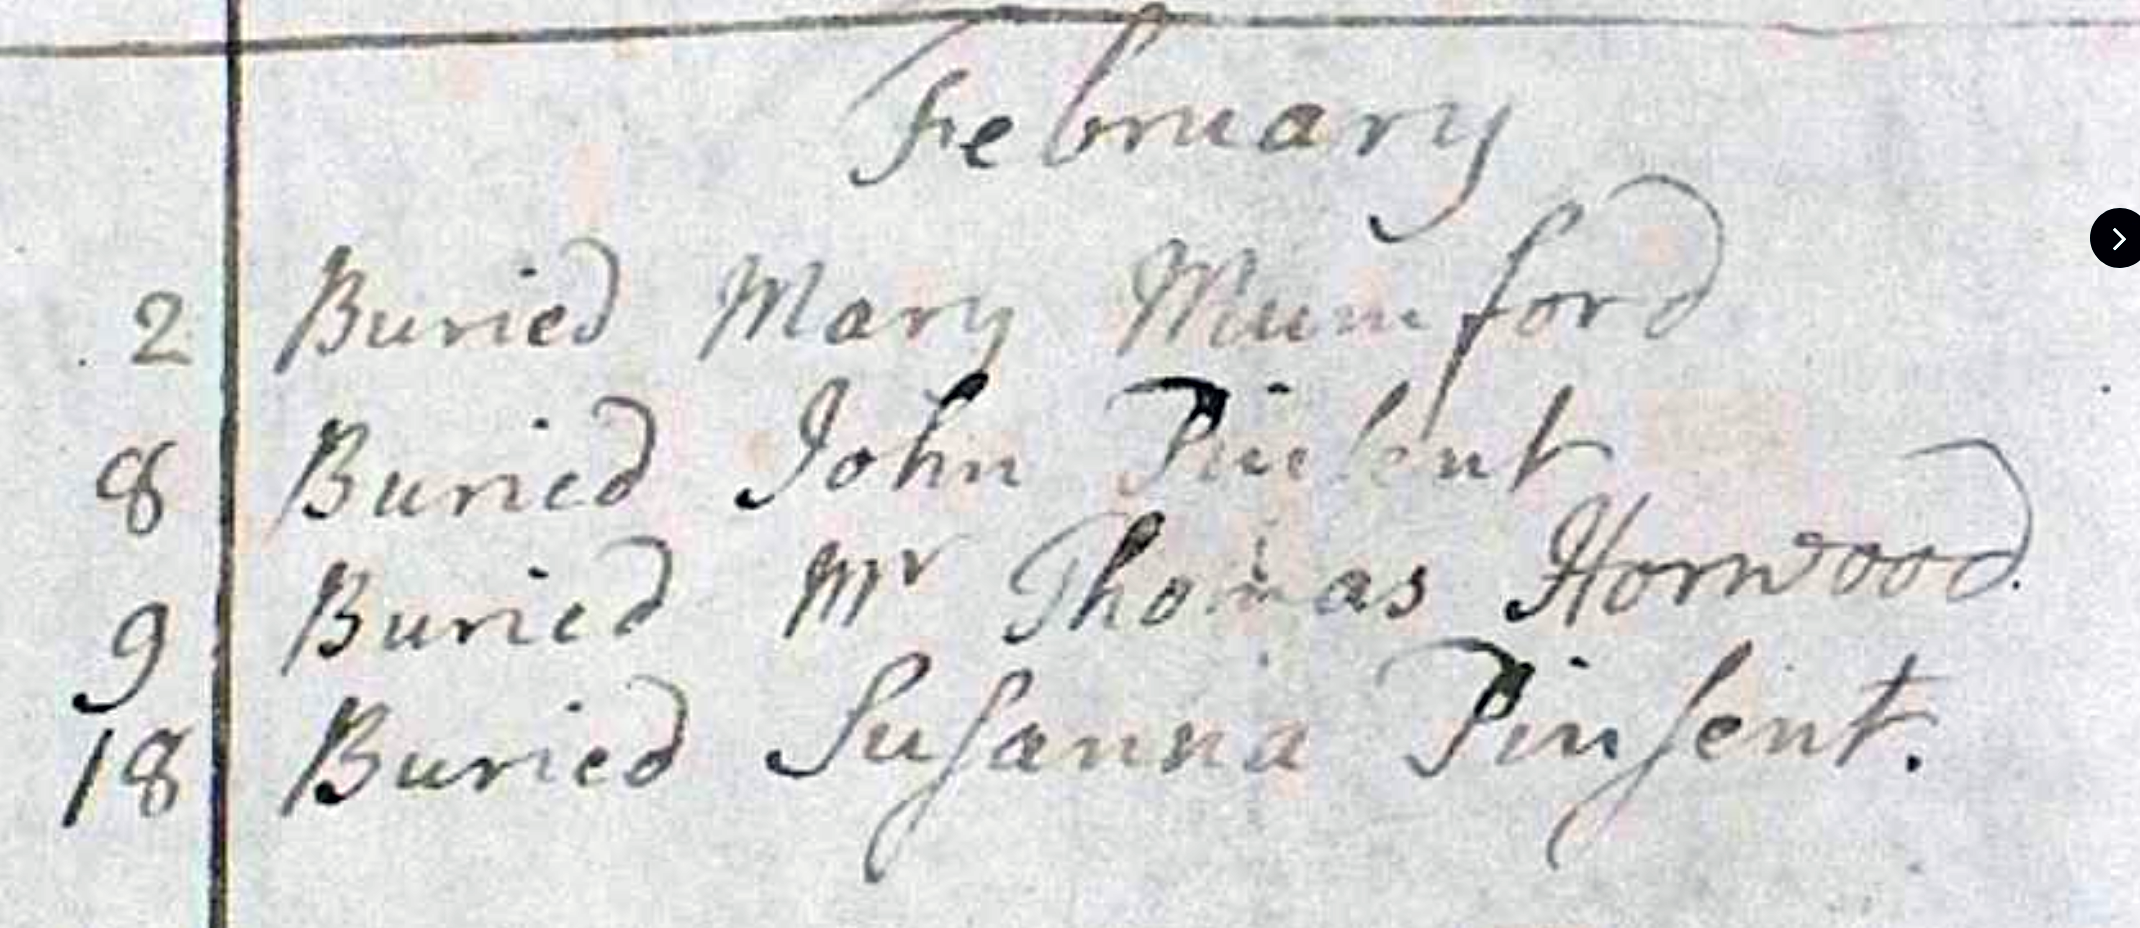 February
2 Buried Mary Mumford
8 Buried John Pinſent
9 Buried Mr Thomas Horwood.
18 Buried Suſanna Pinſent.